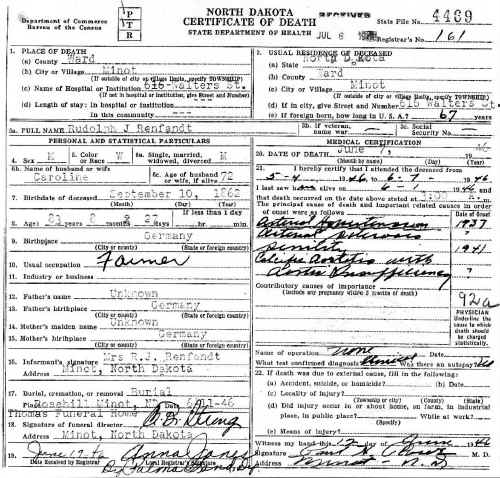 Department of Commerce
Bureau of the Census
P
T
R
NORTH DAKOTA
CERTIFICATE OF DEATH
STATE DEPARTMENT OF HEALTH
RECEIVED
JUL 6
State File No. 4469
Registrar's No. 161
1. PLACE OF DEATH
(a) County Ward
(b) City or Village Minot
(If outside of city or village limits, specify TOWNSHIP)
(c) Name of Hospital or Institution 616-Walters St.
(If not in hospital or institution, give Street and Number)
(d) Length of stay: In hospital or institution
In this community
2. USUAL RESIDENCE OF DECEASED
(a) State North Dakota
(b) County Ward
(c) City or Village Minot
(If outside city or village limits, specify TOWNSHIP)
(d) If in city, give Street and Number 616 Walters St.
(e) If foreign born, how long in U. S. A.? 67 years
3a. FULL NAME Rudolph J Renfandt
3b. If veteran, name war
3c. Social Security No.
PERSONAL AND STATISTICAL PARTICULARS
4. Sex M
5. Color or Race W
6a. Single, married, widowed, divorced M
6b. Name of husband or wife Caroline
6c. Age of husband or wife, if alive 72
7. Birthdate of deceased September 10, 1862
(Month) (Day) (Year)
If less than 1 day
8. Age: 83 8 22 hr. min.
9. Birthplace Germany
(City or county) (State or foreign country)
10. Usual occupation Farmer
11. Industry or business
12. Father's name Unknown
13. Father's birthplace Germany
(City or county) (State or foreign country)
14. Mother's maiden name Unknown
15. Mother's birthplace Germany
(City or county) (State or foreign country)
16. Informant's signature Mrs R.J. Renfandt
Address Minot, North Dakota
17. Burial, cremation, or removal Burial
Place Rosehill Minot, 46
Thomas Funeral Home
18. Signature of funeral director
Address Minot, North Dakota
19. June 17-46 Anna Jones
Date Received by Registrar Local Registrar's Signature
MEDICAL CERTIFICATION
20. DATE OF DEATH June 1,
(Month) (Day) (Year)
21. I hereby certify that I attended the deceased from
5-4 1946 to 6-1 1946
I last saw alive on 6-1 1946
that death occurred on the date above stated at M.
The principal cause of death and important related causes in order of onset were as follows:
Date of Onset
1937
Senility 1941
with
Aortic Insufficiency
Contributory causes of importance
(Include any pregnancy within 3 months of death)
92a
PHYSICIAN
Underline the cause to which death should be charged statistically.
Name of operation none
What test confirmed diagnosis? Clinical Was there an autopsy? No
22. If death was due to external cause, fill in the following:
(a) Accident, suicide, or homicide?
(c) Locality of Injury?
(Township or city) (County) (State)
(d) Did injury occur in or about home, on farm, in industrial place, in public place? While at work?
(Specify type of place)
(e) Means of Injury?
Witness my hand this 12 day of June 1946
Signature M. D.
Address Minot N.D